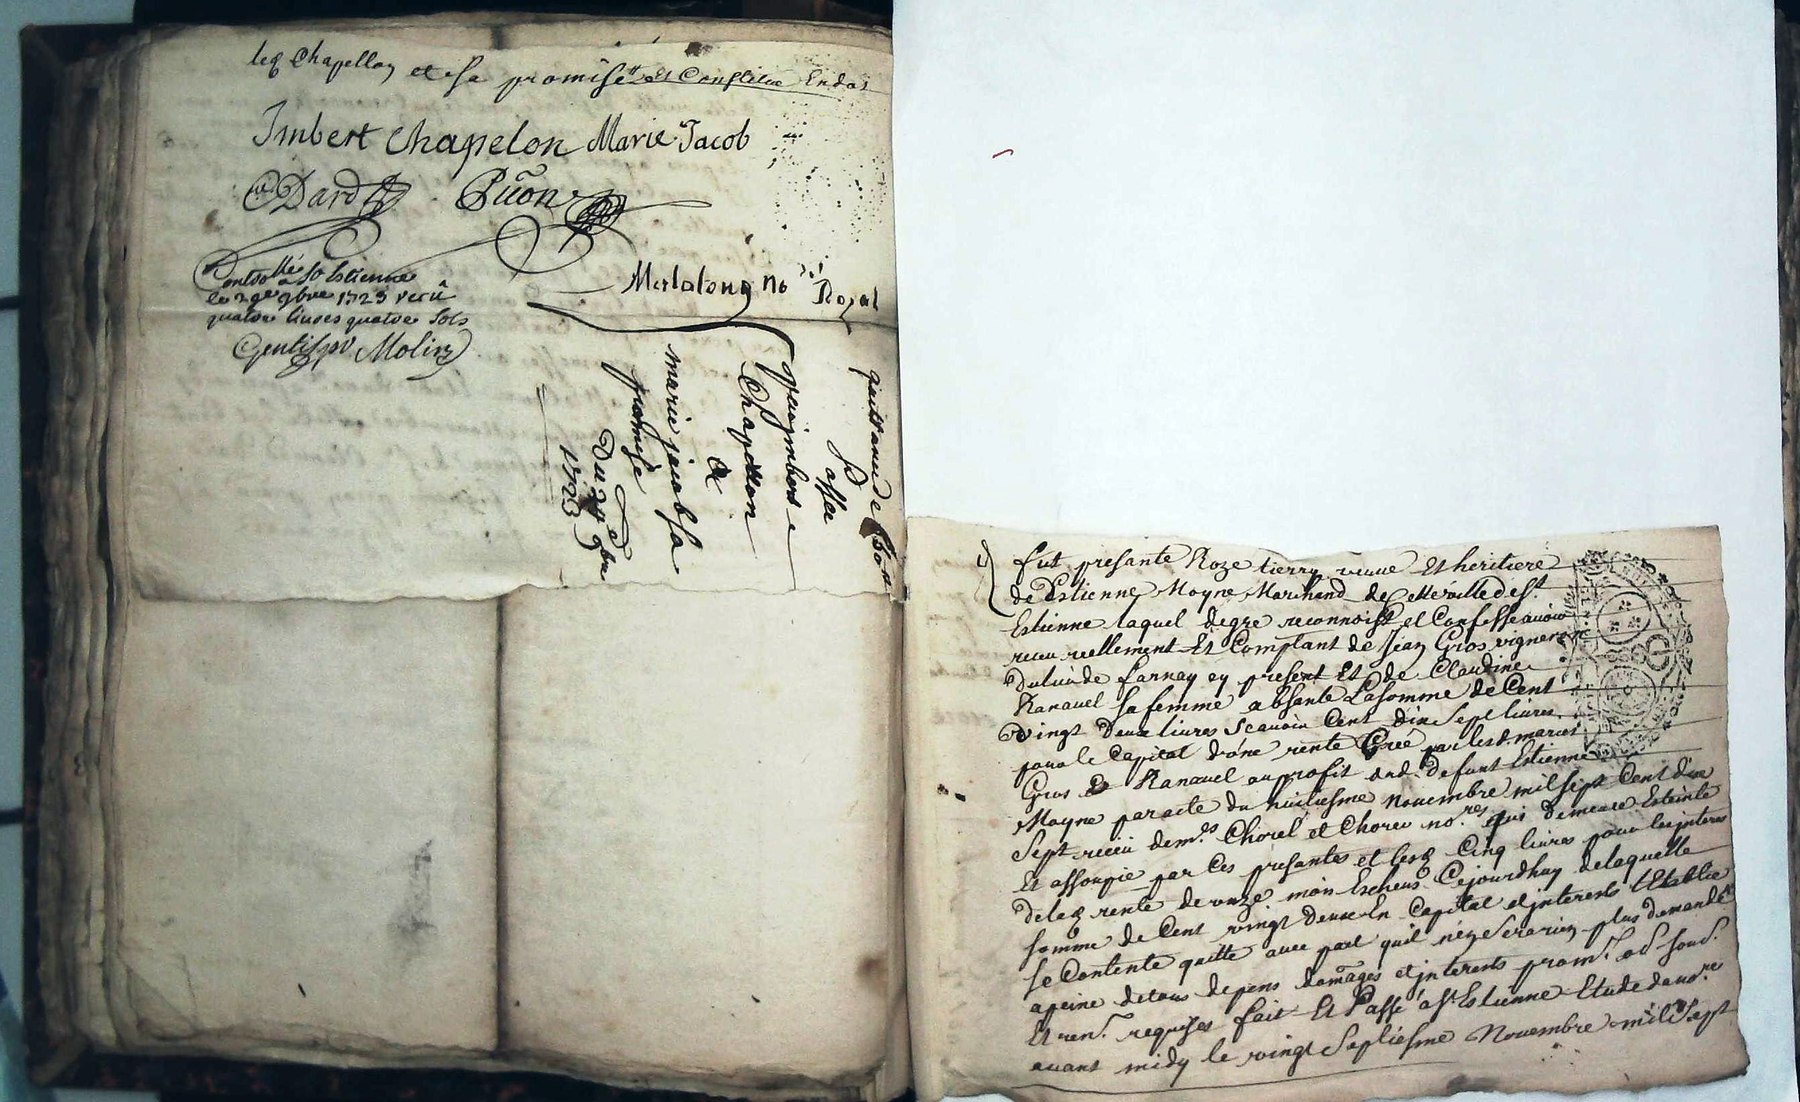 led Chapellon et sa promise et Constitue En dot
Imbert Chapelon Marie Jacob
Dard
Mulalong no Royal
Controllé a St Estienne
le 29e 9bre 1723 recu
quatre livres quatre sols
Molin
marie jacob sa
promise
Chapellon
Du 27 9bre
1723
fut presante Roze tierry veuve Et heritiere
de Estienne Moyne Marchand de cette ville de St
Estienne laquel de gre reconnoist et Confesse avoir
receu reellement Et Comptant de Jean Gros vigneron
du lieu de farnay ey present Et de Claudine
Ranavel sa femme absante La somme de Cent
vingt Deux livres scavoir Cent dix Sept livres
pour le Capital d'une rente Créé par lesd. maries
Gros Et Ranavel au profit dud. defunt Estienne
Moyne par acte du huitiesme novembre mil sept Cent dix
Sept receu de mes. Chorel et Chorel no.res qui demeure Esteinte
Et assoupie par Ces presantes et les Cinq livres pour les interes
de lad rente de onze mois Escheus Cejourdhuy de laquelle
somme de Cent vingt deux En Capital et interests
se Contente quitte avec pact quil ney sera rien plus demandé
a peine de tous depens domages et interests prom. ob. soub.
Et ren. requises fait Et Passé a St Estienne Etude du no.re
avant midy le vingt Septiesme Novembre mil Sept